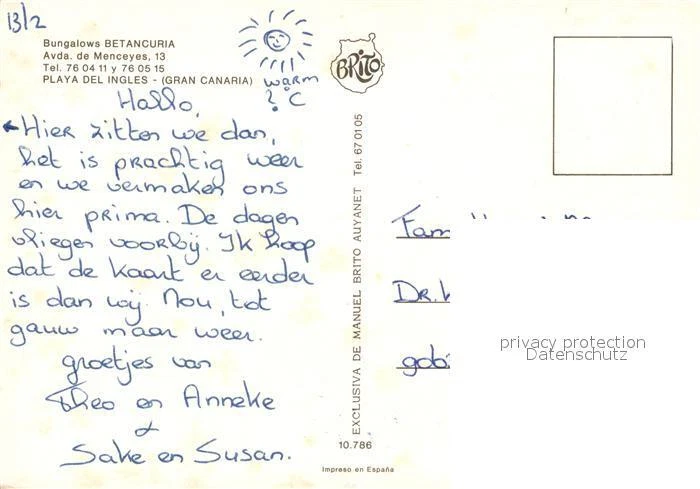 13/2
Bungalows BETANCURIA
Avda. de Menceyes, 13
Tel. 76 04 11 y 76 05 15
PLAYA DEL INGLES - (GRAN CANARIA)
warm
? °C
Hallo,
Hier zitten we dan,
het is prachtig weer
en we vermaken ons
hier prima. De dagen
vliegen voorbij. Ik hoop
dat de kaart er eerder
is dan wij. Nou, tot
gauw maar weer.
groetjes van
Theo en Anneke
&
Sake en Susan.
BRITO
EXCLUSIVA DE MANUEL BRITO AUYANET Tel. 67 01 05
10.786
Impreso en España
Fam
Dr.
privacy protection
Datenschutz